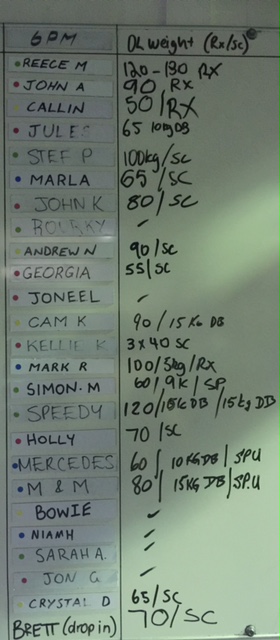 6PM DL weight (Rx/Sc)
REECE M 120-130 RX
JOHN A 90 RX
CALLIN 50/RX
JULES 65 10kgDB
STEF P 100kg/SC
MARLA 65/SC
JOHN K 80/SC
ROURKY ✓
ANDREW N 90/SC
GEORGIA 55/SC
JONEEL ✓
CAM K 90/15KG DB
KELLIE K 3x40 SC
MARK R 100/5kg/Rx
SIMON.M 60/9K/SP
SPEEDY 120/15KDB/15kgDB
HOLLY 70/SC
MERCEDES 60/10KGDB/SPU
M & M 80/15KGDB/SPU
BOWIE ✓
NIAMH ✓
SARAH A. ✓
JON G ✓
CRYSTAL D 65/SC
BRETT (drop in) 70/SC